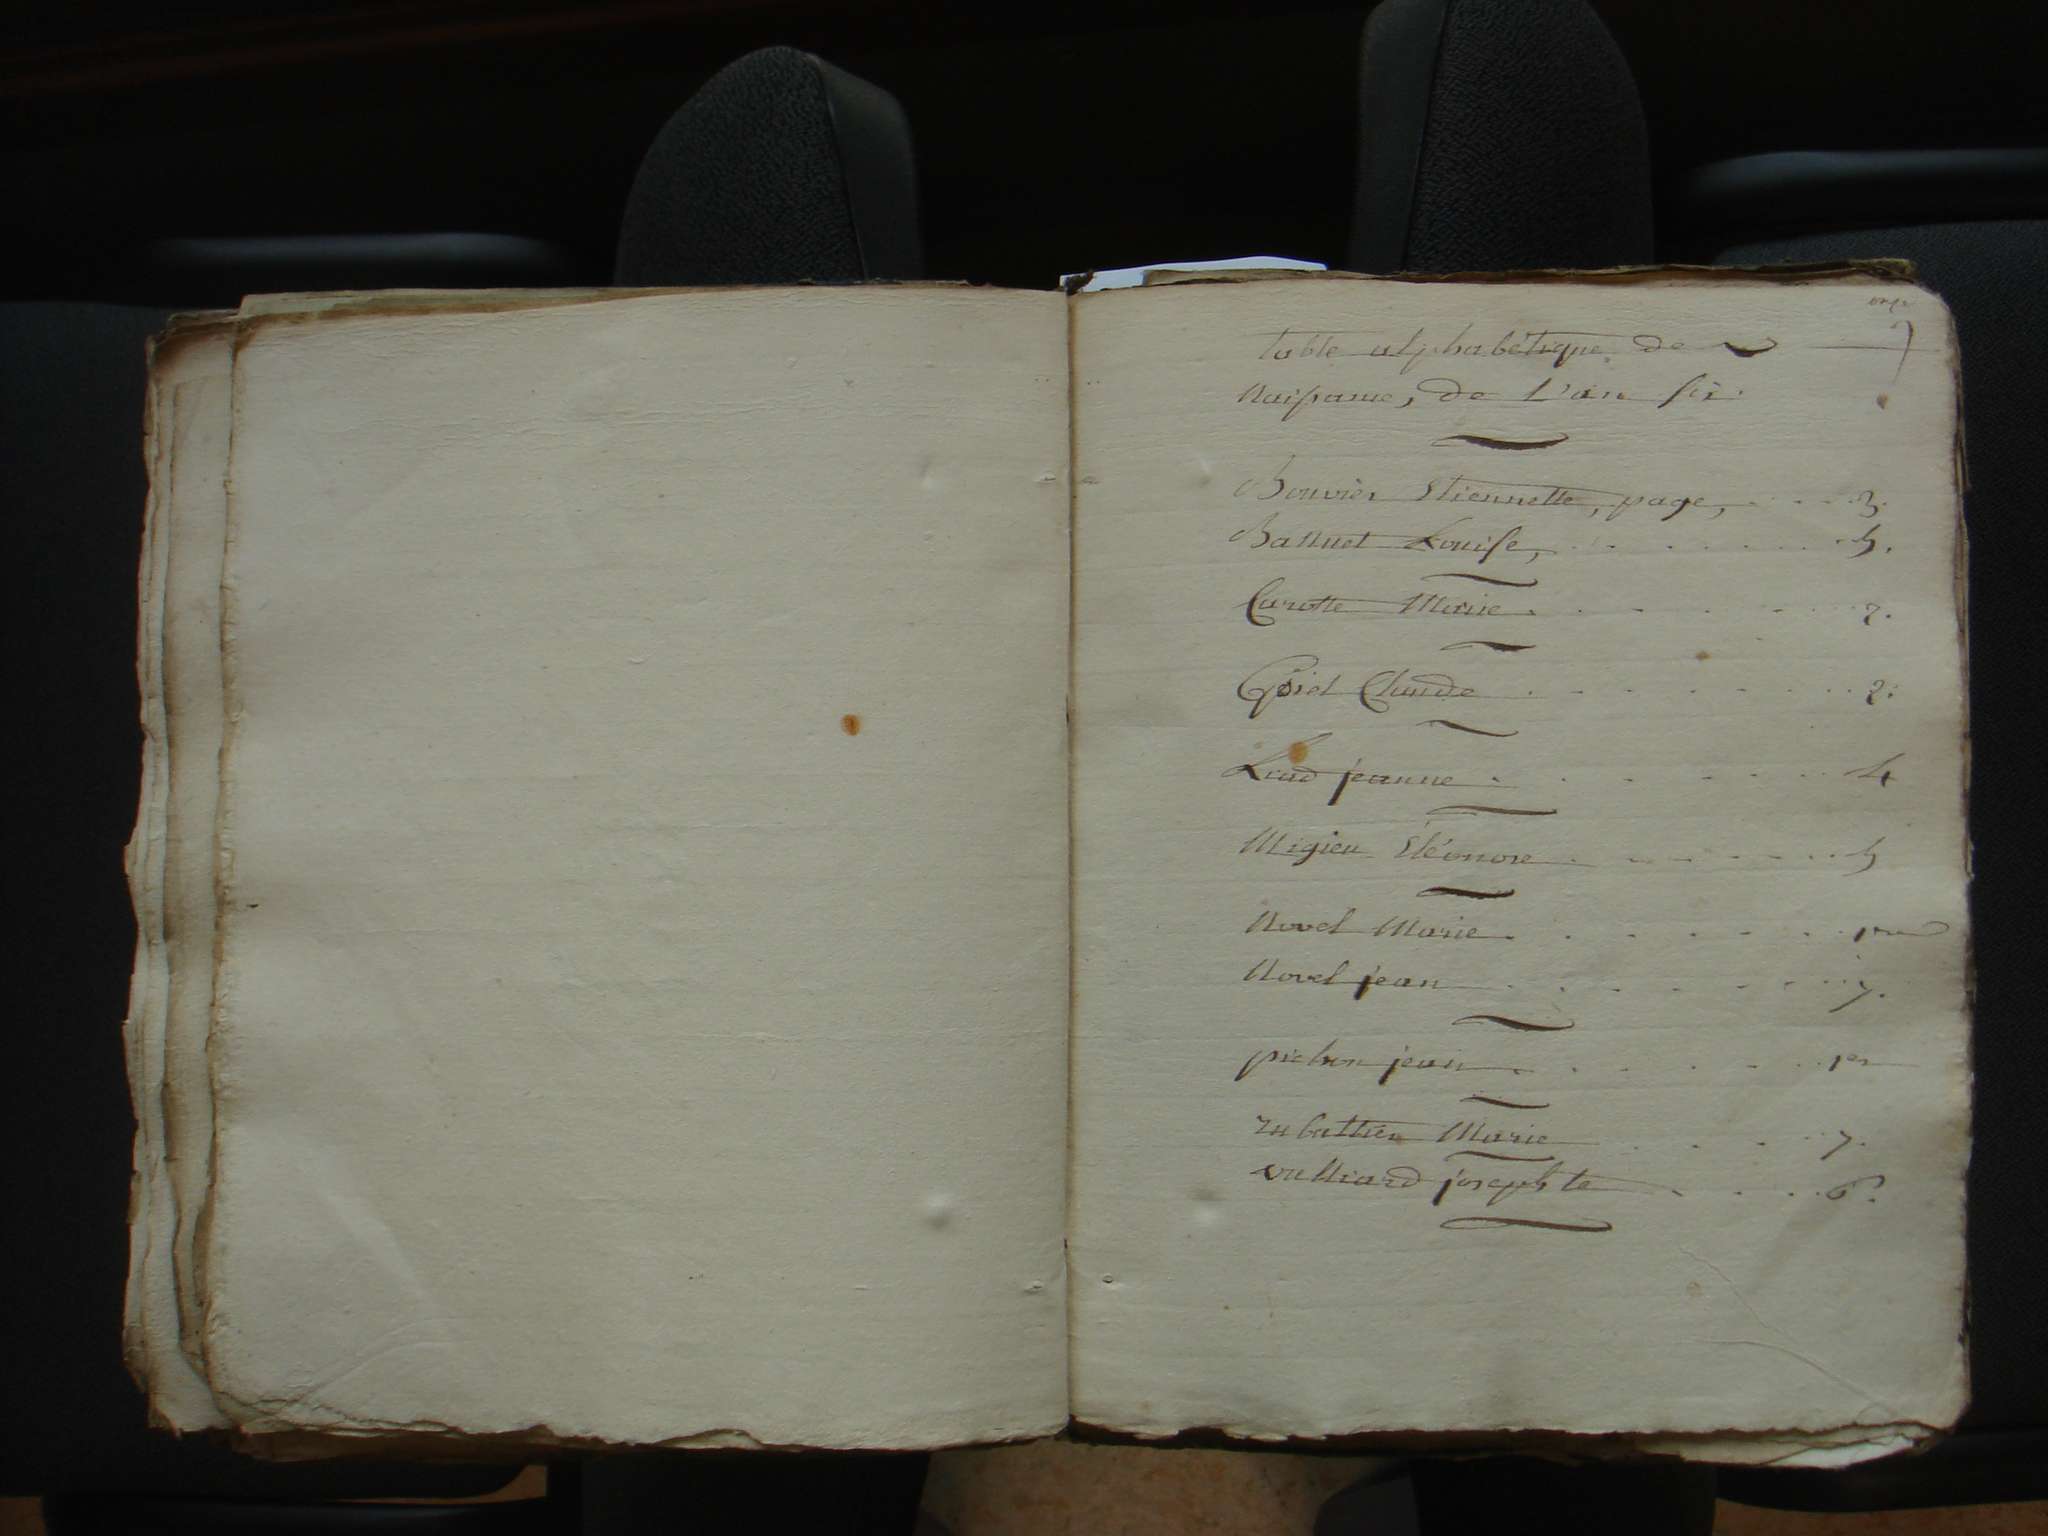 onze
Table alphabétique de
Naissance, de L'an six.
Bouvier Etiennette, page, . . . . 3.
Banuet Louise, . . . . . . . 5.
Carotte Marie . . . . . . . 2.
Goiet Claude . . . . . . . . 2.
Liad jeanne . . . . . . . 4
Migieu Eléonore . . . . . . . 5
Novel Marie . . . . . . .
Novel jean . . . . . . . 7.
pichon jean . . . . . . . 1er
rubattier Marie . . . . 7.
vulliard josephte . . . . 6.